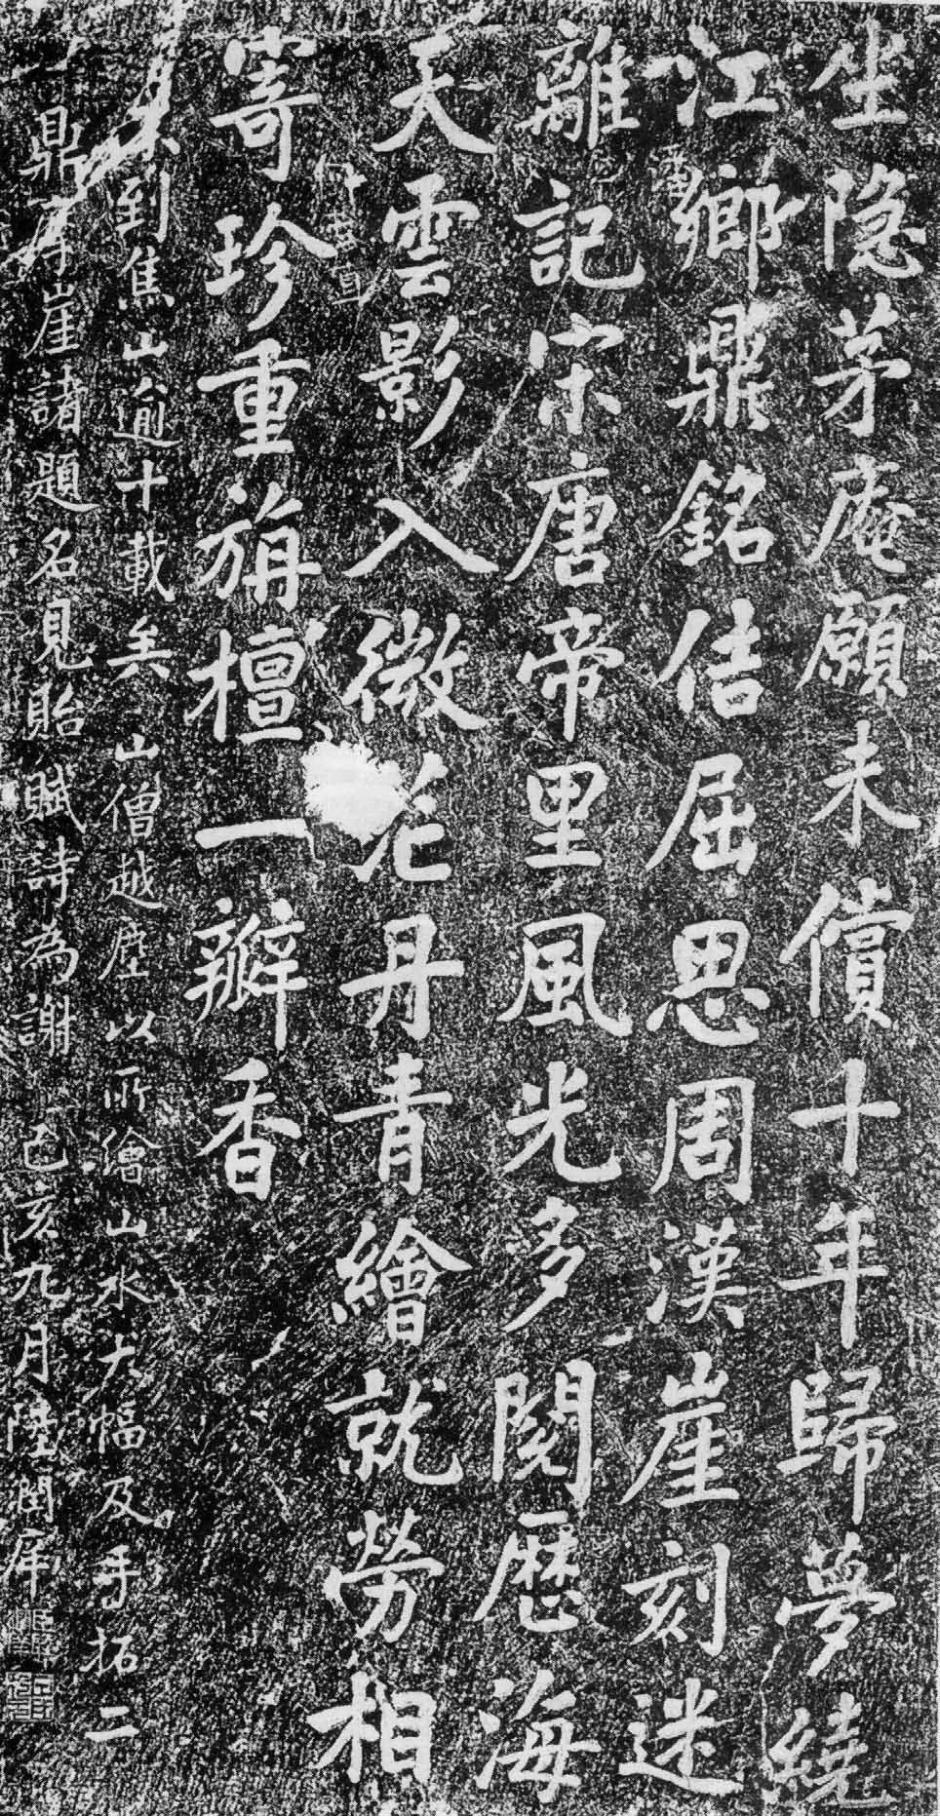 坐隐茅庵願未償十年歸夢繞
江鄉鼎銘佶屈思周漢崖刻迷
離記宋唐帝里風光多閱歷海
天雲影入微茫丹青繪就勞相
寄珍重旃檀一瓣香
到焦山逾十載矣山僧越塵以所繪山水大幅及手拓二
鼎摩崖諸題名見貽賦詩為謝己亥九月陸潤庠